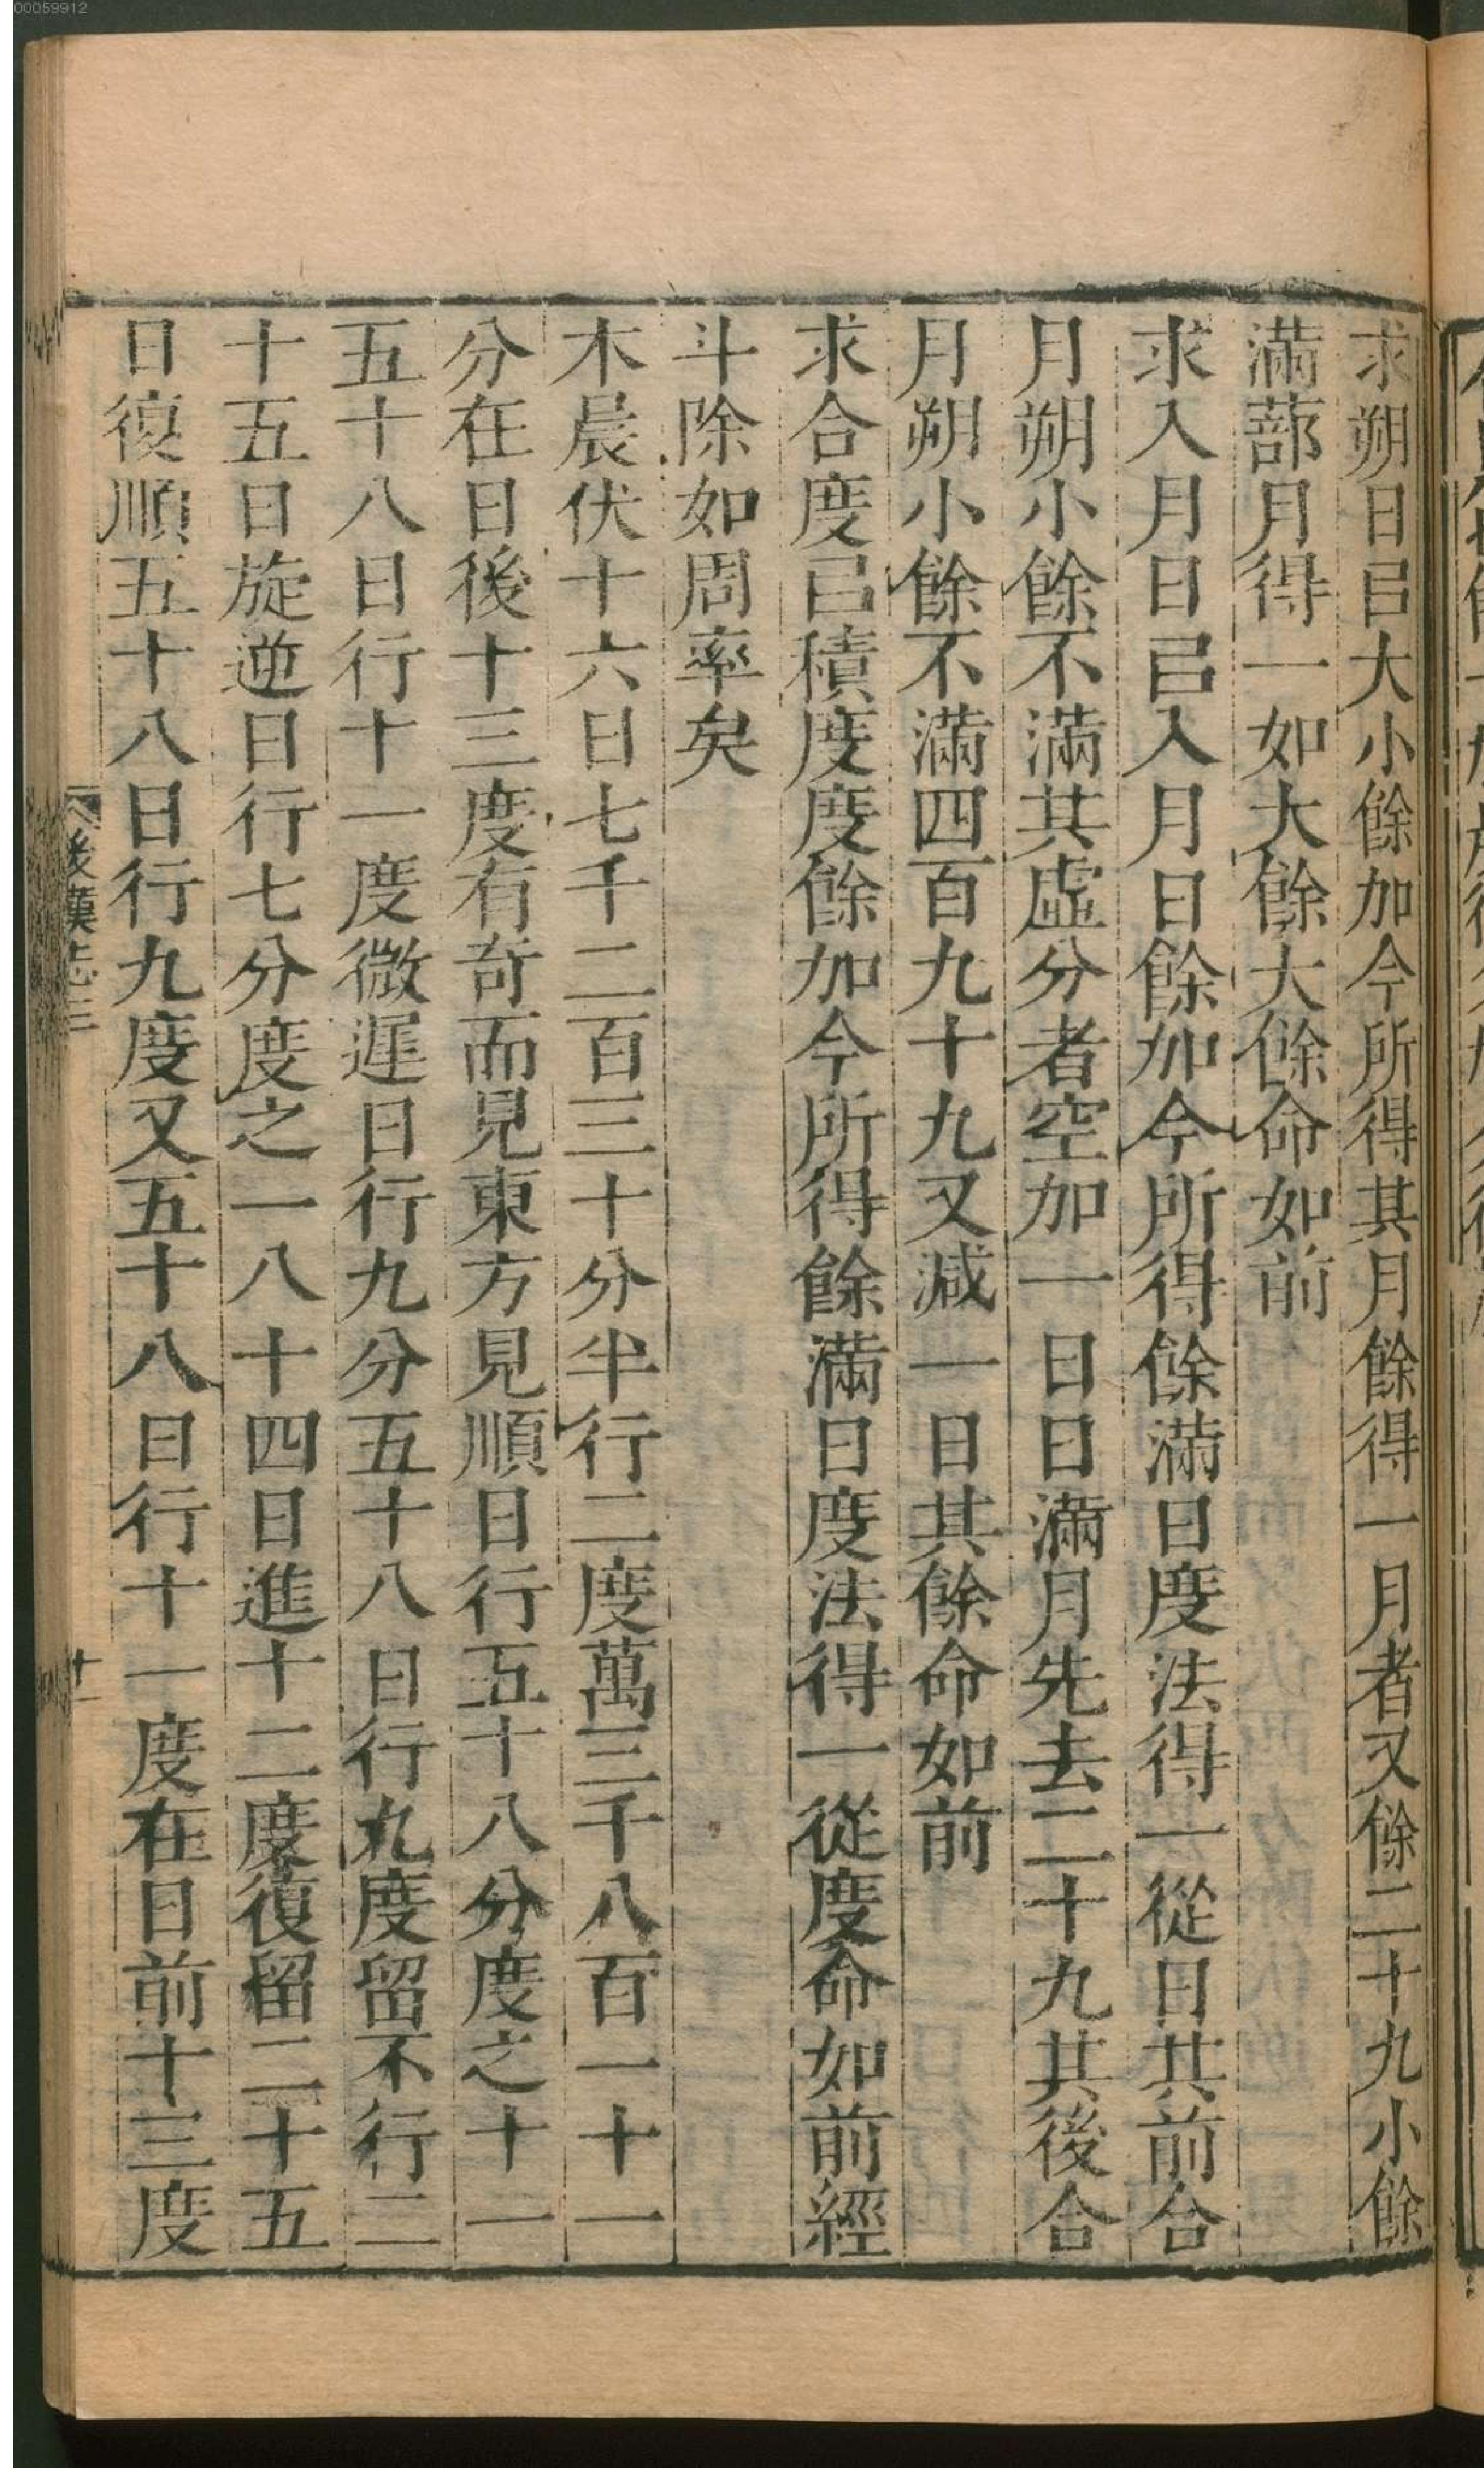 00059912
求朔日㠯大小餘加今所得其月餘得一月者又餘二十九小餘
滿蔀月得一如大餘大餘命如前
求入月日㠯入月日餘加今所得餘滿日度法得一從日其前合
月朔小餘不滿其虛分者空加一日日滿月先去二十九其後合
月朔小餘不滿四百九十九又減一日其餘命如前
求合度㠯積度度餘加今所得餘滿日度法得一從度命如前經
斗除如周率矣
木晨伏十六日七千二百三十分半行二度萬三千八百一十一
分在日後十三度有奇而見東方見順日行五十八分度之十一
五十八日行十一度微遲日行九分五十八日行九度留不行二
十五日旋逆日行七分度之一八十四日進十二度復留二十五
日復順五十八日行九度又五十八日行十一度在日前十三度
後漢志三
十一